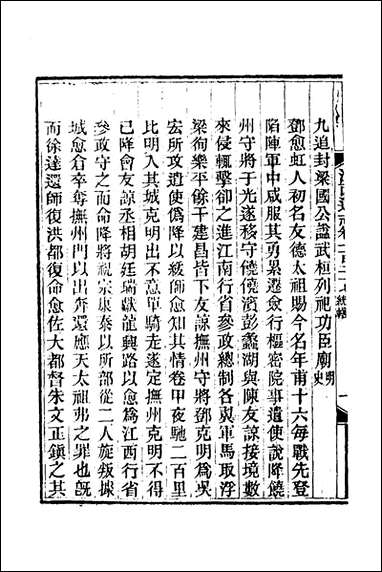 九追封梁國公諡武桓列祀功臣廟明史
鄧愈虹人初名友德太祖賜今名年甫十六每戰先登
陷陣軍中咸服其勇累遷僉行樞密院事遣使說降饒
州守將于光遂移守饒饒濱彭蠡湖與陳友諒接境數
來侵輒擊卻之進江南行省參政總制各翼軍馬取浮
梁徇樂平餘干建昌皆下友諒撫州守將鄧克明爲吳
宏所攻遣使僞降以緩師愈知其情卷甲夜馳二百里
比明入其城克明出不意單騎走遂定撫州克明不得
已降會友諒丞相胡廷瑞獻龍興路以愈爲江西行省
參政守之而命降將祝宗康泰以所部從二人旋叛攻
城愈倉卒奪撫州門以出奔還應天太祖弗之罪也旣
而徐達還師復洪都復命愈佐大都督朱文正鎭之其